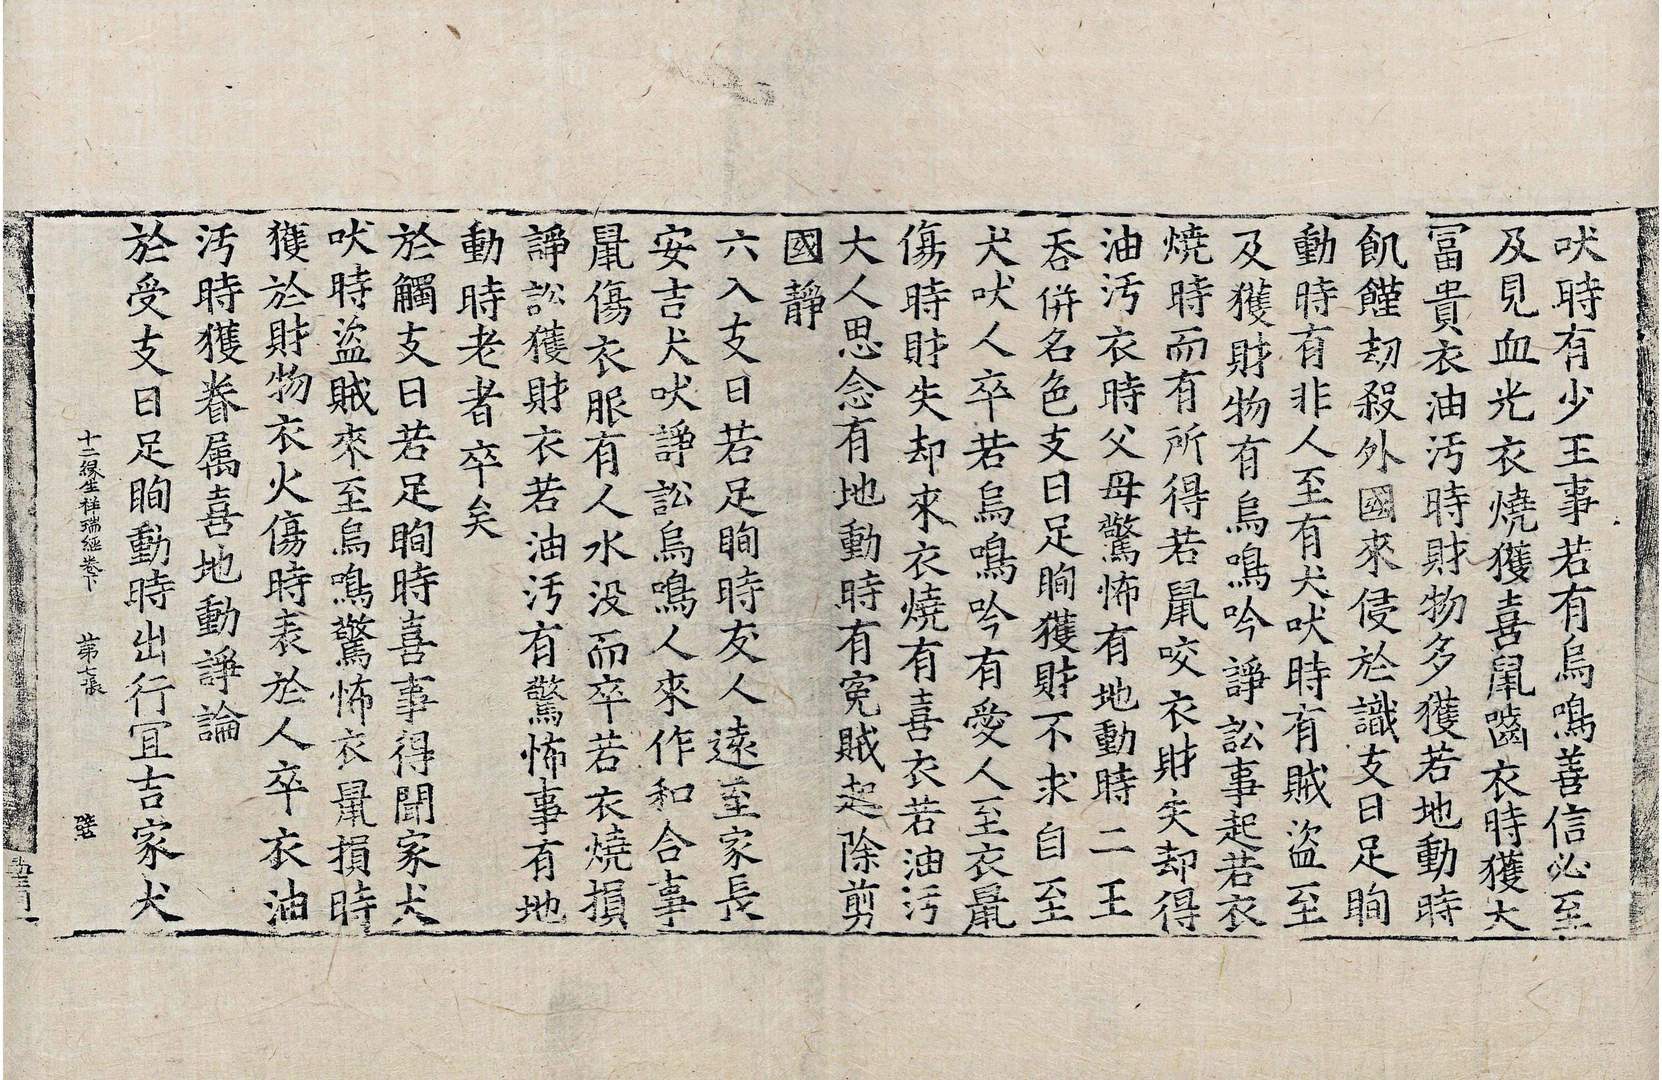 吠時有少王事若有烏鳴善信必至
及見血光衣燒獲喜鼠嚙衣時獲大
冨貴衣油汚時財物多獲若地動時
飢饉刼殺外國來侵於識支日足眴
動時有非人至有犬吠時有賊盜至
及獲財物有烏鳴吟諍訟事起若衣
燒時而有所得若鼠咬衣財失却得
油汚衣時父母驚怖有地動時二王
吞併名色支日足眴獲財不求自至
犬吠人卒若烏鳴吟有愛人至衣鼠
傷時財失却來衣燒有喜衣若油汚
大人思念有地動時有寃賊起除剪
國靜
六入支日若足眴時友人遠至家長
安吉犬吠諍訟烏鳴人來作和合事
鼠傷衣服有人水没而卒若衣燒損
諍訟獲財衣若油汚有驚怖事有地
動時老者卒矣
於觸支日若足眴時喜事得聞家犬
吠時盜賊來至烏鳴驚怖衣鼠損時
獲於財物衣火傷時表於人卒衣油
汚時獲眷属喜地動諍論
於受支日足眴動時出行冝吉家犬
十二緣生祥瑞經卷下 第七張